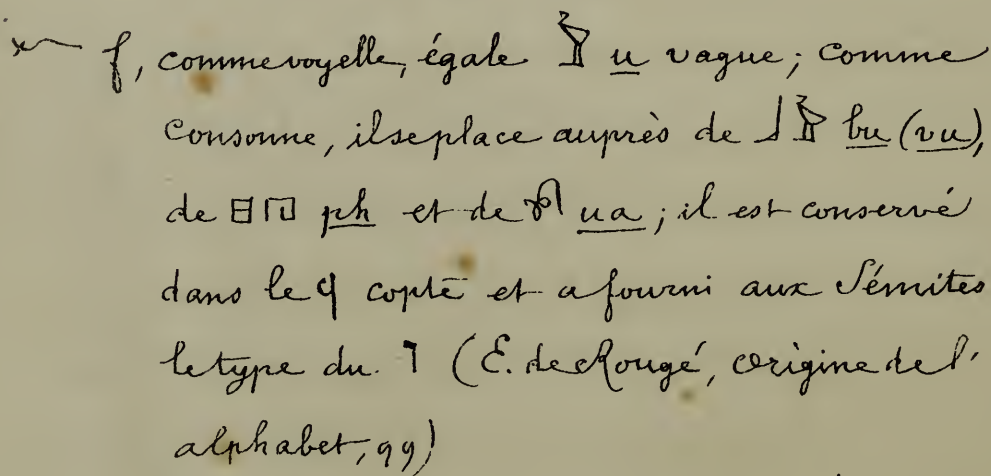 𓆑 f, comme voyelle, égale 𓅱 u vague; comme
consonne, il se place auprès de 𓃀𓅱 bu (vu),
de 𓊪𓉔 ph et de 𓍯 ua; il est conservé
dans le ϥ copte et a fourni aux Sémites
le type du ו (E. de Rougé, Origine de l'
alphabet, 99)